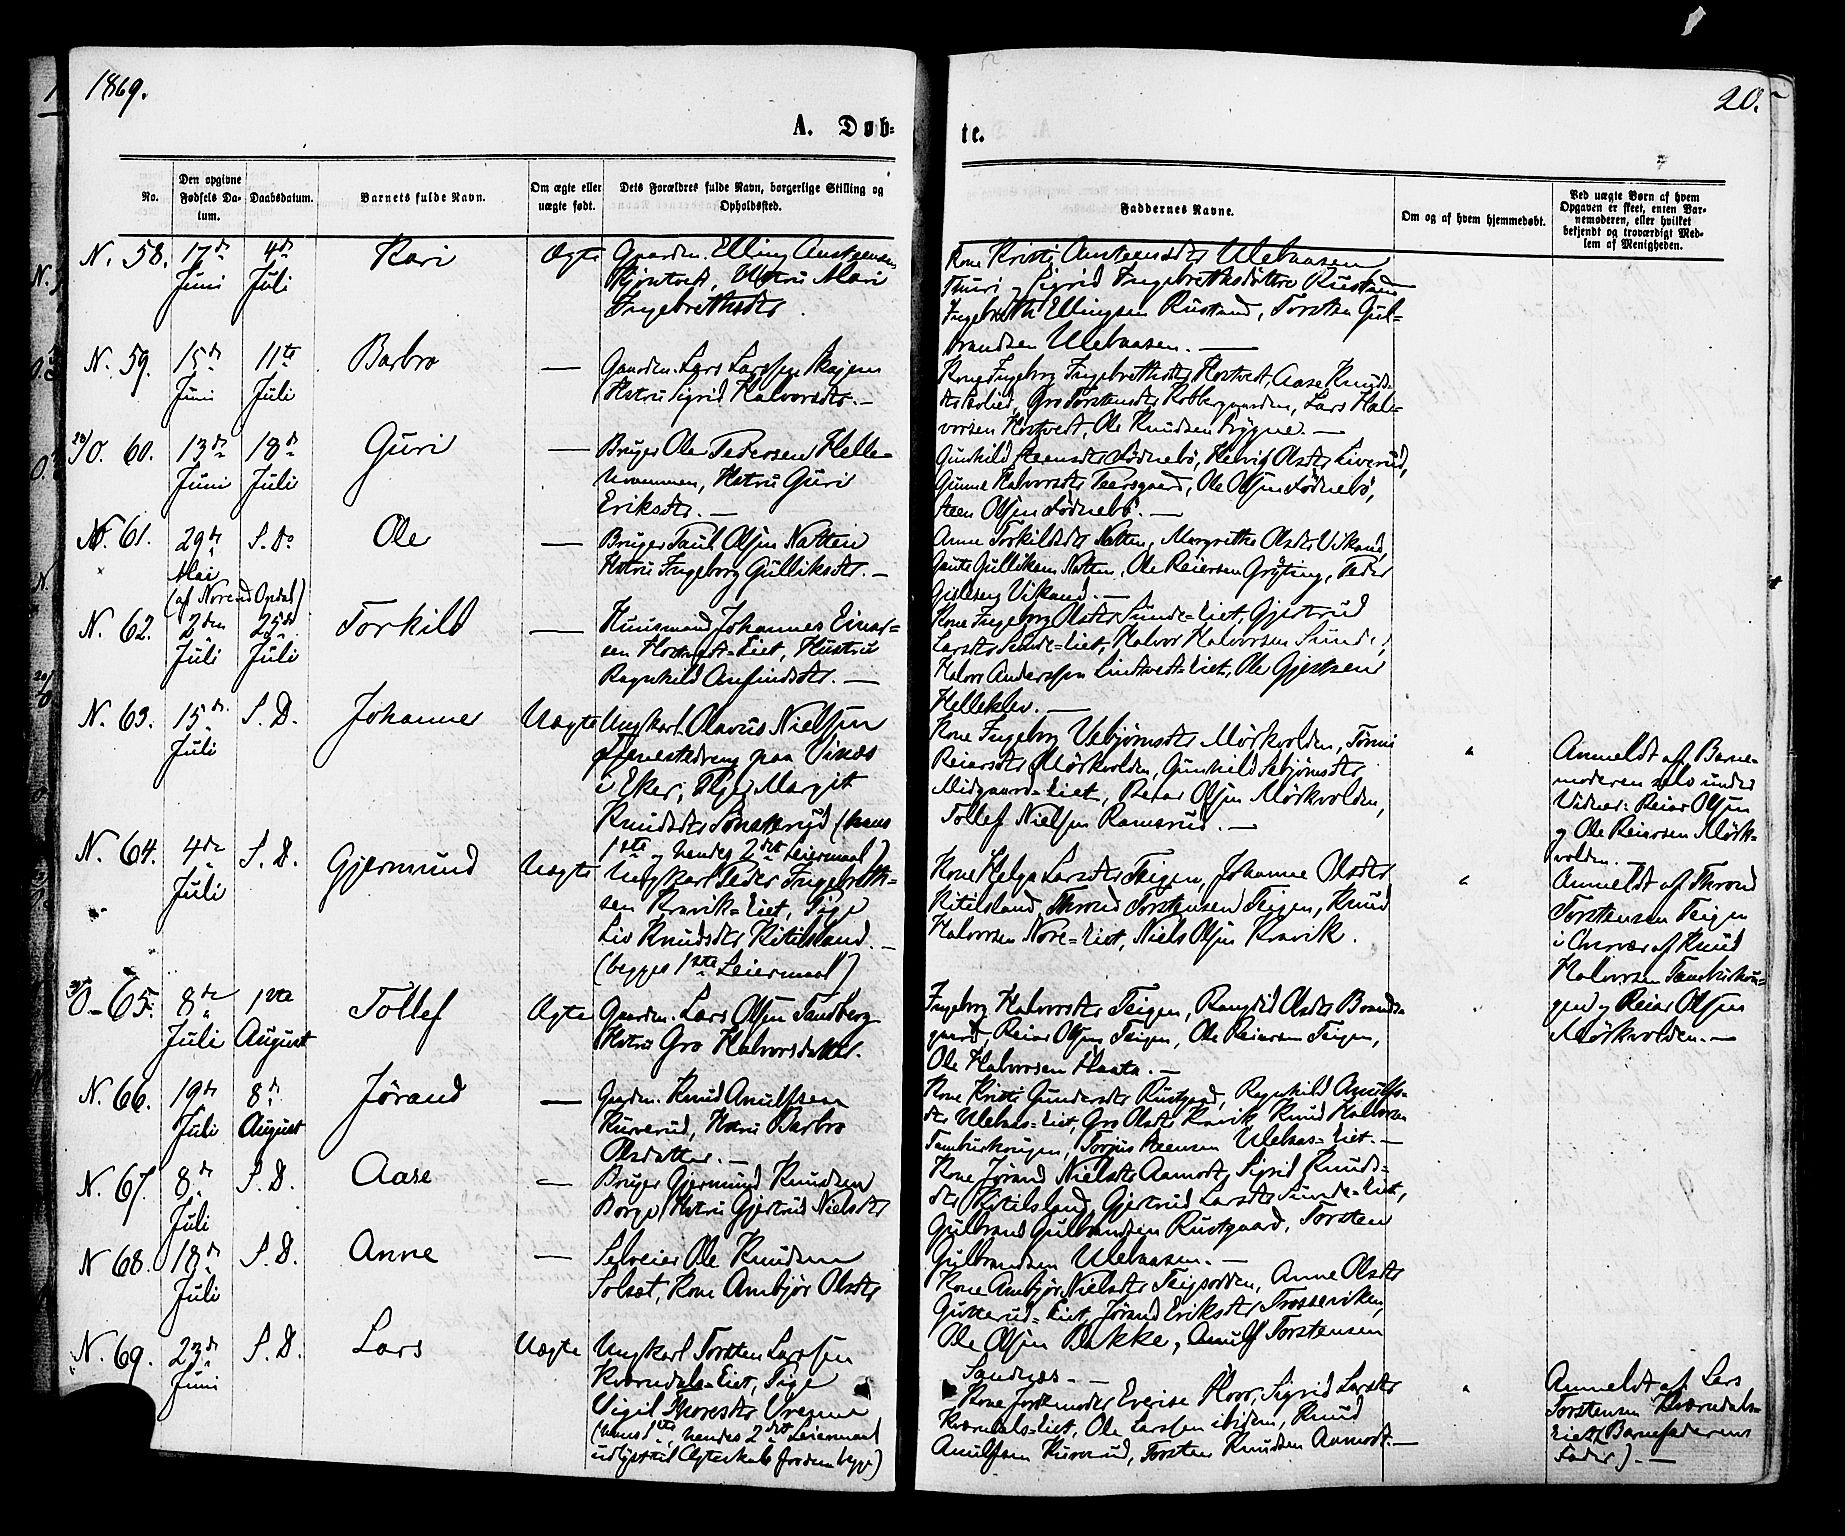 1869.
20.
A. Døb-
te.
No.
Den opgivne Fødsels Da-tum.
Daabsdatum.
Barnets fulde Navn.
Om ægte eller uægte født.
Dets Forældres fulde Navn, borgerlige Stilling og Opholdssted.
Faddernes Navne.
Om og af hvem hjemmedøbt.
Ved uægte Børn af hvem Opgaven er skeet, enten Bar-nemoderen, eller hvilket bekjendt og troværdigt Med-lem af Menigheden.
N. 58. 17de Juni 4de Juli Kari Ægte
Gaardm. Elling
Hustru Mari
Ingebrethsdtr.
Kone Kristi Ulebaasen
Thuri og Sigrid Ingebrethsdøttre Rustand
Ingebreth Ellingsen Rustand, Torsten Gul-
brandsen Ulebaasen. —
N. 59. 15de Juni 11te Juli Barbro —
Gaardm. Lars Larssen
Hstru Sigrid Halvorsdtr. —
Kone Ingeborg Ingebrethsdtr Hortvet, Aase Knuds-
Gro Torstensdtr Lars Hal-
vorsen Hortvedt, Ole Knudsen Brygne. —
O. 60. 13de Juni 18de Juli Guri —
Bruger Ole Pedersen Helle-
Hstru Guri
Eriksdtr. —
Gunhild Steensdtr Fødnebø, Henrig Olsdtr Liverud,
Gunne Halvorsdtr Ole Olsen Fødnebø,
Steen Olsen Fødnebø. —
N. 61. 29de Mai S. D. Ole —
(af Nore
Bruger Paul Olsen Natten
Hstru Ingeborg Gulliksdtr. —
Anne Torkildsdtr Natten, Margrethe Olsdtr Vikand,
Gaute Gulliksen Natten, Ole Reiersen Gryting, Peder
Vikand. —
N. 62. 2den Juli 25de Juli Torkild —
Huusmand Johannes Einar-
sen Eiet, Hustru
Ragnhild Anfindsdtr. —
Kone Ingeborg Olsdtr Sunde-Eiet, Gjertrud
Larsdtr Sunde-Eiet, Halvor Halvorsen Sunde,
Halvor Anderssen Lindtvedt-Eiet, Ole Gjertsen
Hellekler. —
N. 63. 15de Juli S. D. Johannes Uægte
Ungkarl Olavus Nielssen
Tjenestedreng paa Vinæs
i Eker, Pige Margit
Knudsdtr (hans
1ste og hendes 2det Leiermaal)
Kone Ingeborg Vebjørnsdtr Mørkvolden, Tønni
Reiarsdtr Mørkvolden, Gunhild Sebjørnsdtr
Midgaard-Eiet, Reiar Olsen Mørkvolden,
Tollef Nielsen Ramsrud. —
Anmeldt af Barne-
moderen selv under
Vidner: Reiar Olsen
og Ole Reiersen Mørk-
volden. —
N. 64. 4de Juli S. D. Gjermund Uægte
Ungkarl Peder Ingebreth-
sen Kravik-Eiet, Pige
Liv Knudsdtr Kitilsland. —
(begges 1ste Leiermaal)
Kone Helga Larsdtr Teigen, Johanne Olsdtr
Kitilsland, Thrond Torstensen Teigen, Knud
Halvorsen Nore-Eiet, Niels Olsen Kravik.
Anmeldt af Thrond
Torstensen Teigen
i Overvær af Knud
Halvorsen Tamburhou-
gen og Reiar Olsen
Mørkvolden. —
O. 65. 8de Juli 1ste August Tollef Ægte
Gaardm. Lars Olsen Sandberg
Hstru Gro Halvorsdatter.
Ingeborg Halvorsdtr Teigen, Rangdid Olsdtr Brands-
gaard, Reiar Olsen Teigen, Ole Reiersen Teigen,
Ole Halvorsen Haata. —
N. 66. 19de Juli 8de August Jørand —
Gaardm. Knud Anulfsen
Kurverud, Hstru Barbro
Olsdatter. —
Kone Kristi Gundersdtr Rustgard, Ragnhild Anulfs-
dtr Ulebaas-Eiet, Gro Olsdtr Kravik, Knud Halvorsen
Tamburhougen, Torjus Steensen Ulebaas-Eiet. —
N. 67. 8de Juli S. D. Aase —
Bruger Gjermund Knudsen
Borge, Hstru Gjertrud Nielsdtr
Kone Jørand Nielsdtr Aamodt, Sigrid Knuds-
dtr Kitilsland, Gjertrud Larsdtr Sunde-Eiet,
Gulbrand Gulbrandsen Rustgaard, Torsten
Gulbrandsen Ulebaasen. —
N 68. 18de Juli S. D. Anne —
Selveier Ole Knudsen
Solsæt, Kone Ambjør Olsdtr
Kone Ambjør Nielsdtr Anne Olsdtr
Gutterud-Eiet, Jørand Eriksdtr Trosserviken,
Ole Olsen Bakke, Anulf Torstensen
Sandnæs. —
N. 69. 23de Juni S. D. Lars Uægte
Ungkarl Torsten Larssen
Kværndals-Eiet, Pige
Vigil Thoresdtr Vrenne
(hans 1ste, hendes 2det Leiermaal
Ægteskab
Kone Jordemoder Sigrid Larsdtr
Kværndals-Eiet, Ole Larssen ibidem, Knud
Anulfsen Kurverud, Torsten Knudsen Aamodt. —
Anmeldt af Lars
Torstensen Kværndals-
Eiet (Barnefaderens
Fader). —